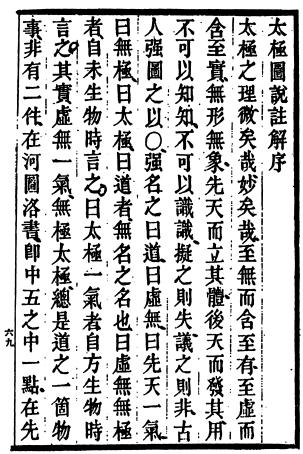 太極圖說註解序
太極之理微矣哉妙矣哉至無而含至有至虛而
含至實無形無象先天而立其體後天而發其用
不可以知知不可以識識擬之則失議之則非古
人强圖之以〇强名之曰道曰虛無曰先天一氣
曰無極曰太極曰道者無名之名也曰虛無無極
者自未生物時言之曰太極一氣者自方生物時
言之其實虛無一氣無極太極總是道之一箇物
事非有二件在河圖洛書卽中五之中一點在先
六九